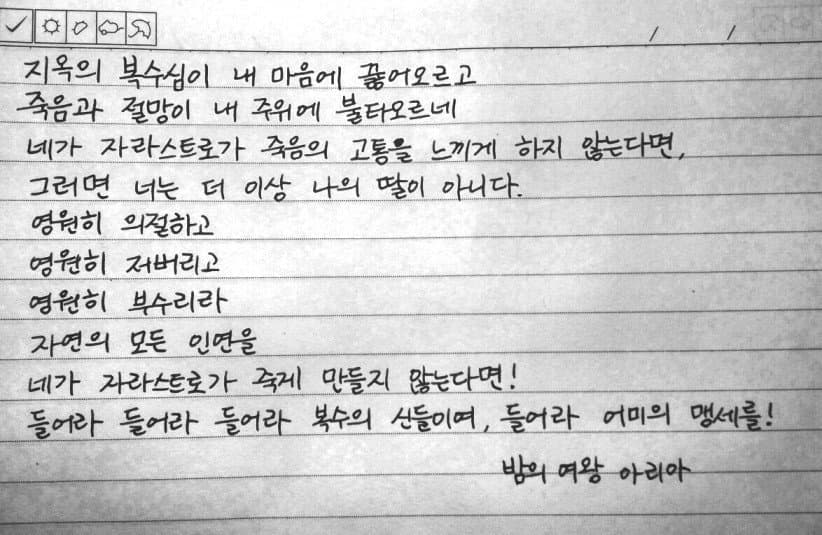 지옥의 복수심이 내 마음에 끓어오르고
죽음과 절망이 내 주위에 불타오르네
네가 자라스트로가 죽음의 고통을 느끼게 하지 않는다면,
그러면 너는 더 이상 나의 딸이 아니다.
영원히 의절하고
영원히 저버리고
영원히 부수리라
자연의 모든 인연을
네가 자라스트로가 죽게 만들지 않는다면!
들어라 들어라 들어라 복수의 신들이여, 들어라 어미의 맹세를!
밤의 여왕 아리아